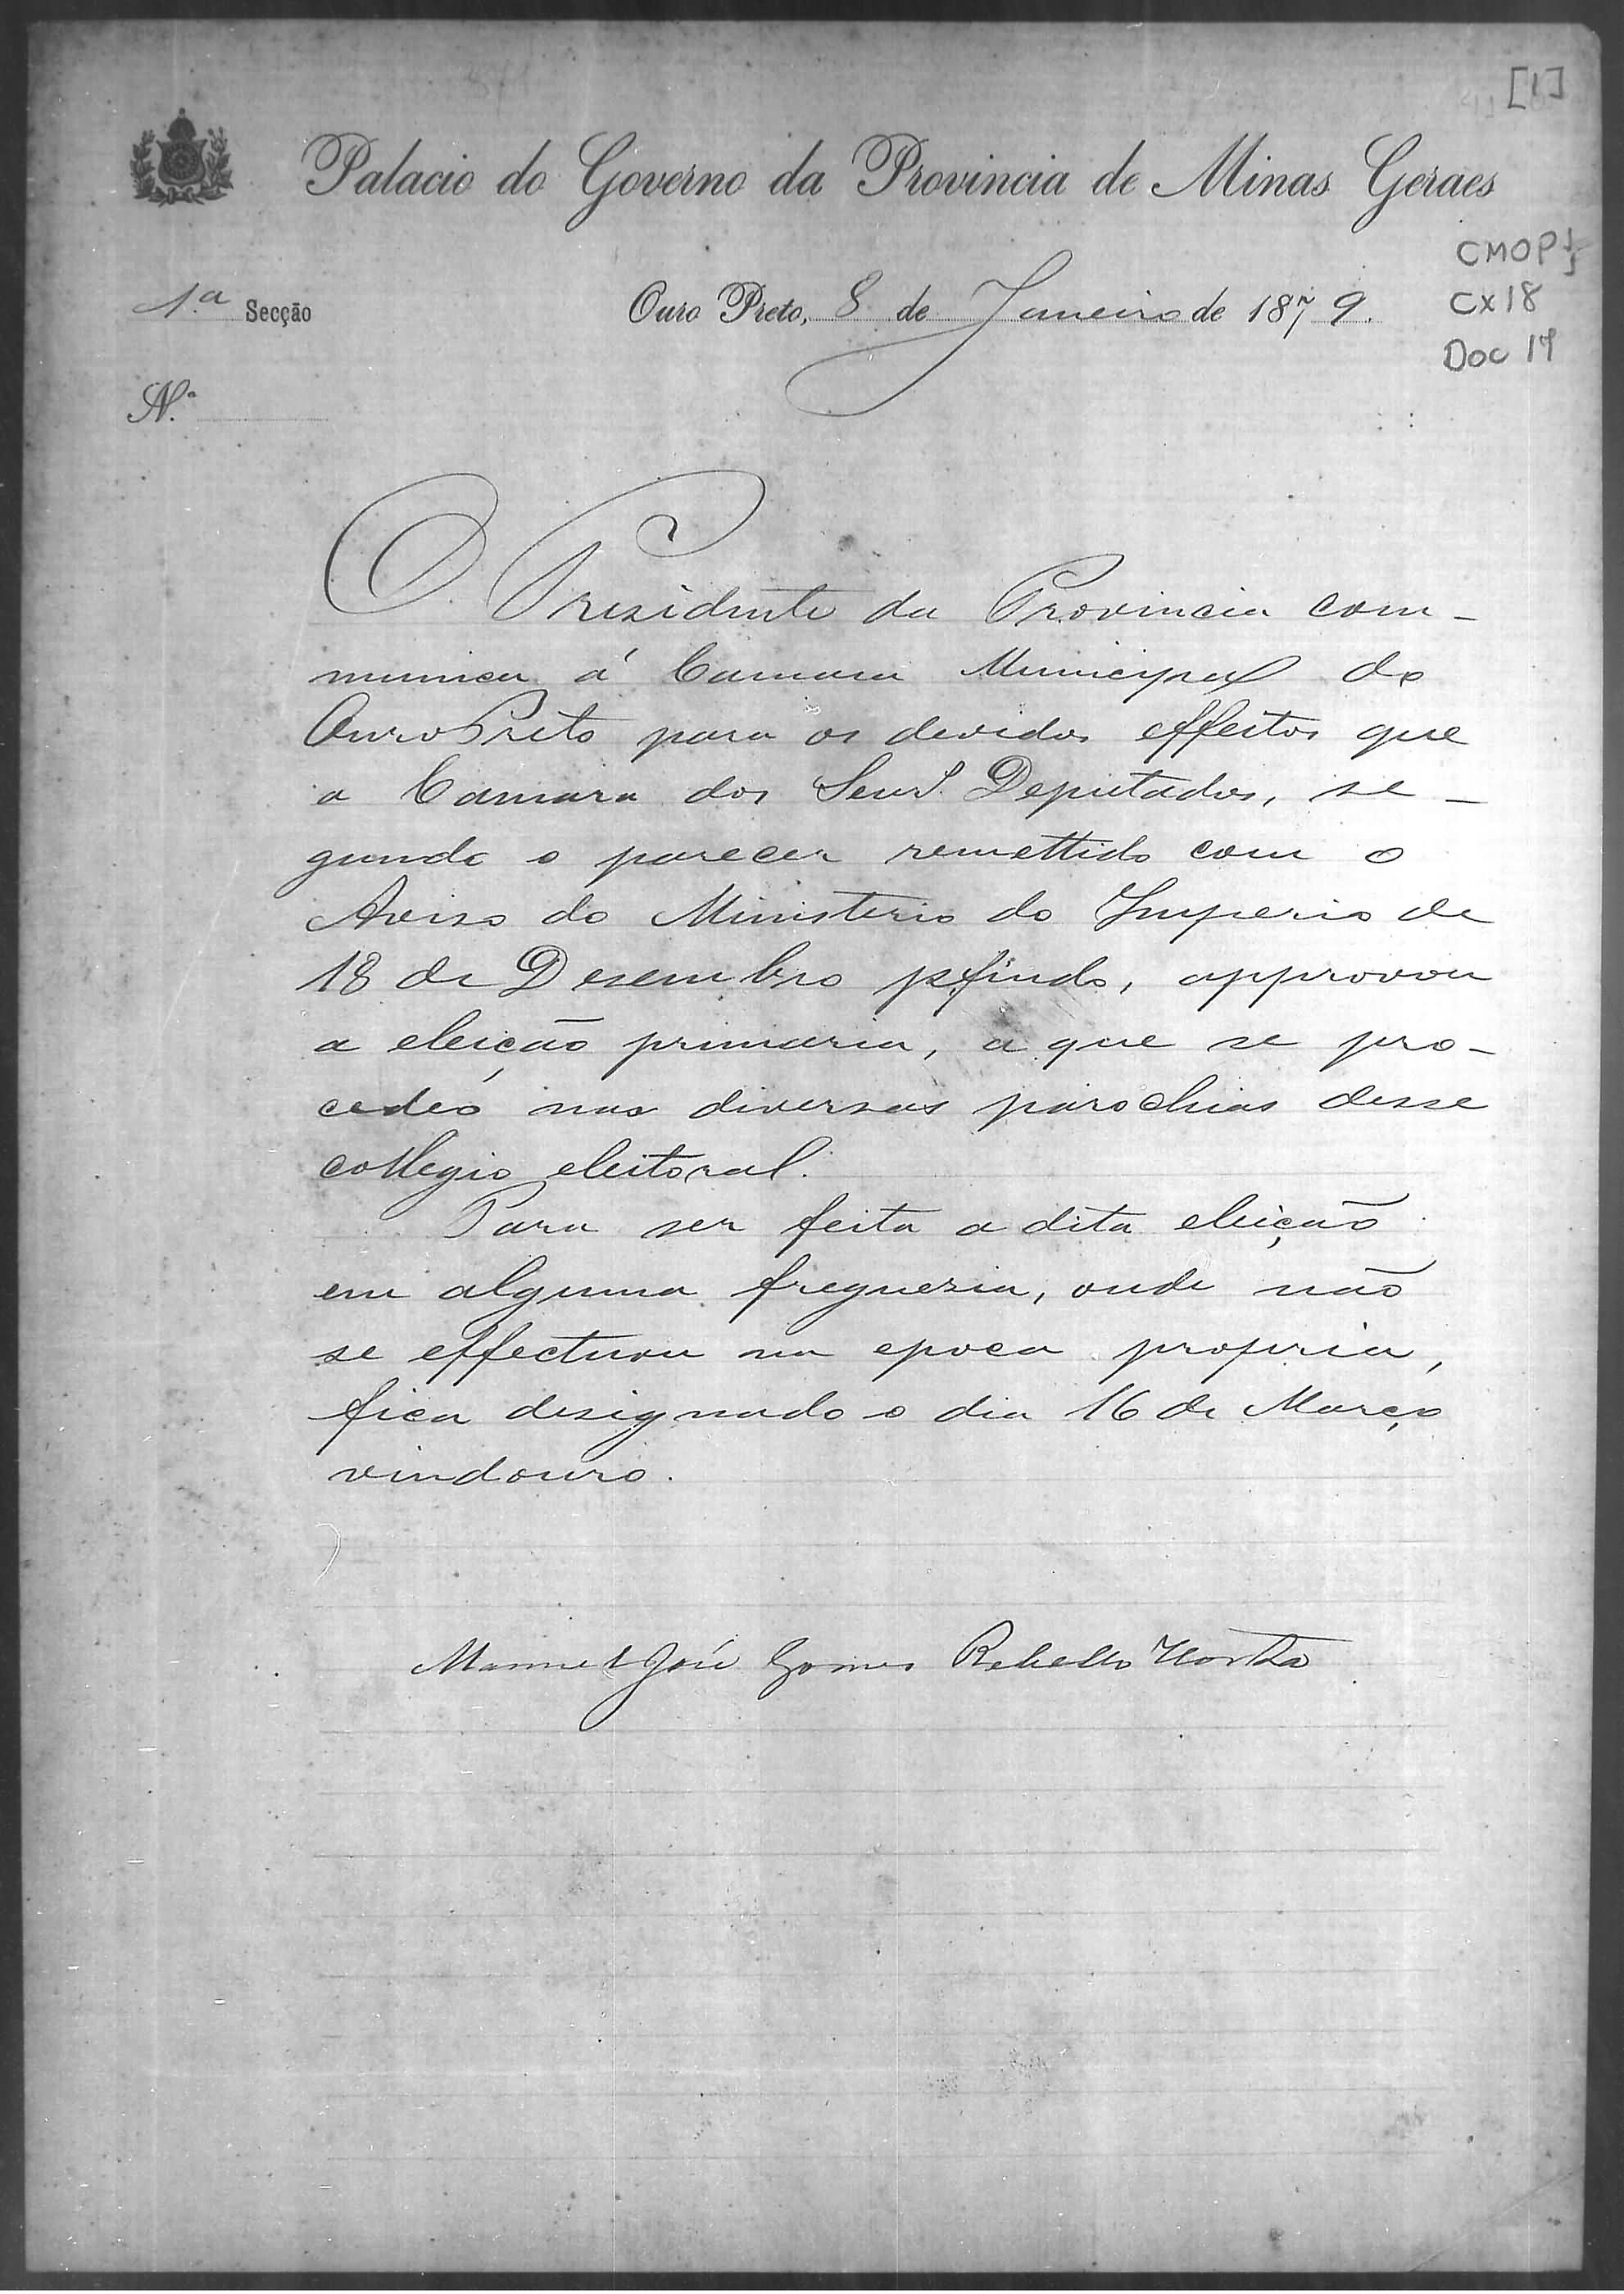 [1]
Palacio do Governo da Provincia de Minas Geraes
CMOP
1.ª Secção
Ouro Preto, 8 de Janeiro de 1879.
CX18
Doc 17
N.º
O Presidente da Provincia com-
munica á Camara Municipal do
Ouro Preto para os devidos effeitos que
a Camara dos Senr.s Deputados, se-
gundo o parecer remettido com o
Aviso do Ministerio do Imperio de
18 de Desembro p.findo, approvou
a eleição primaria, a que se pro-
cedeo nas diversas parochias desse
collegio eleitoral.
Para ser feita a dita eleição
em alguma freguesia, onde não
se effectuou na epoca propria,
fica designado o dia 16 de Março
vindouro.
Manuel José Gomes Rebello Horta